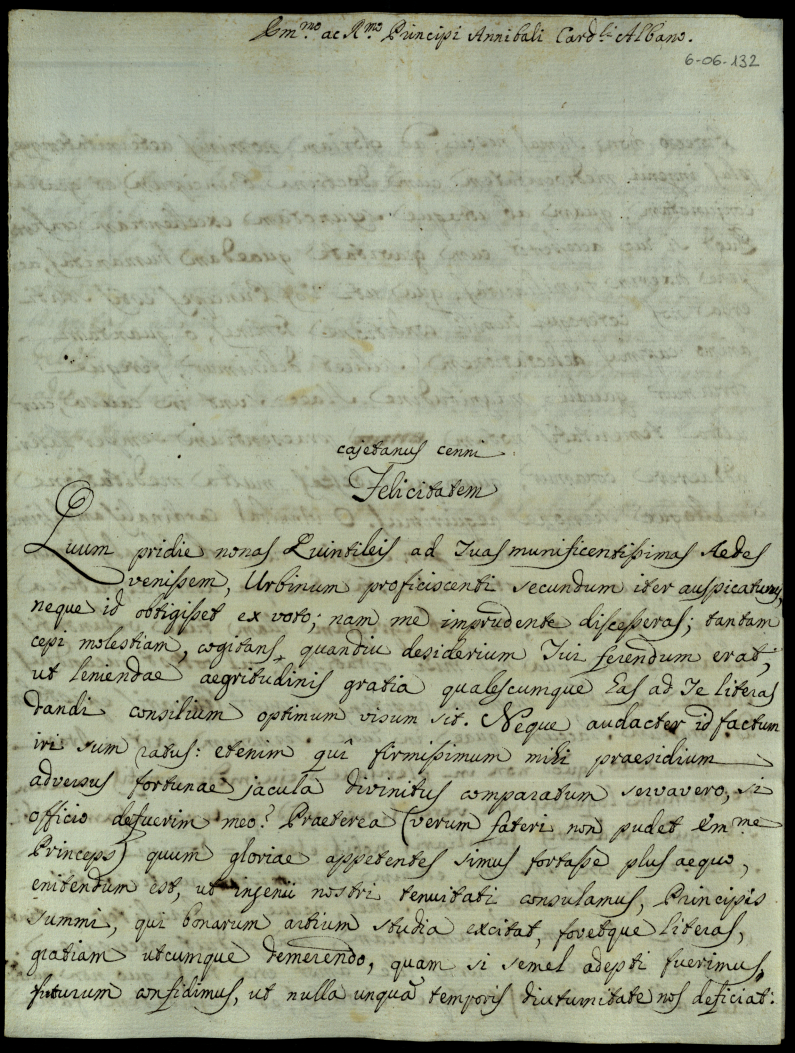 Em.mo ac R.mo Principi Annibali Card.li Albano.
6-06-132
cajetanus cenni
Felicitatem
Quum pridie nonas Quintileis ad Tuas munificentissimas Aedes
venissem, Urbinum proficiscenti secundum iter auspicaturus,
neque id obtigisset ex voto; nam me imprudente discesseras; tantam
cepi molestiam, cogitans, quandiu desiderium Tui ferendum erat,
ut leniendae aegritudinis gratia qualescumque Eas ad Te literas
dandi consilium optimum visum sit. Neque audacter id factum
iri sum ratus: etenim quî firmissimum mihi praesidium
adversus fortunae jacula divinitus comparatum servavero, si
officio defuerim meo? Praeterea (verum fateri non pudet Em.me
Princeps) quum gloriae appetentes simus fortasse plus aequo,
enitendum est, ut ingenii nostri tenuitati consulamus, Principis
summi, qui bonarum artium studia excitat, fovetque literas,
gratiam utcumque demerendo, quam si semel adepti fuerimus,
futurum confidimus, ut nulla unquã temporis diuturnitate nos deficiat: